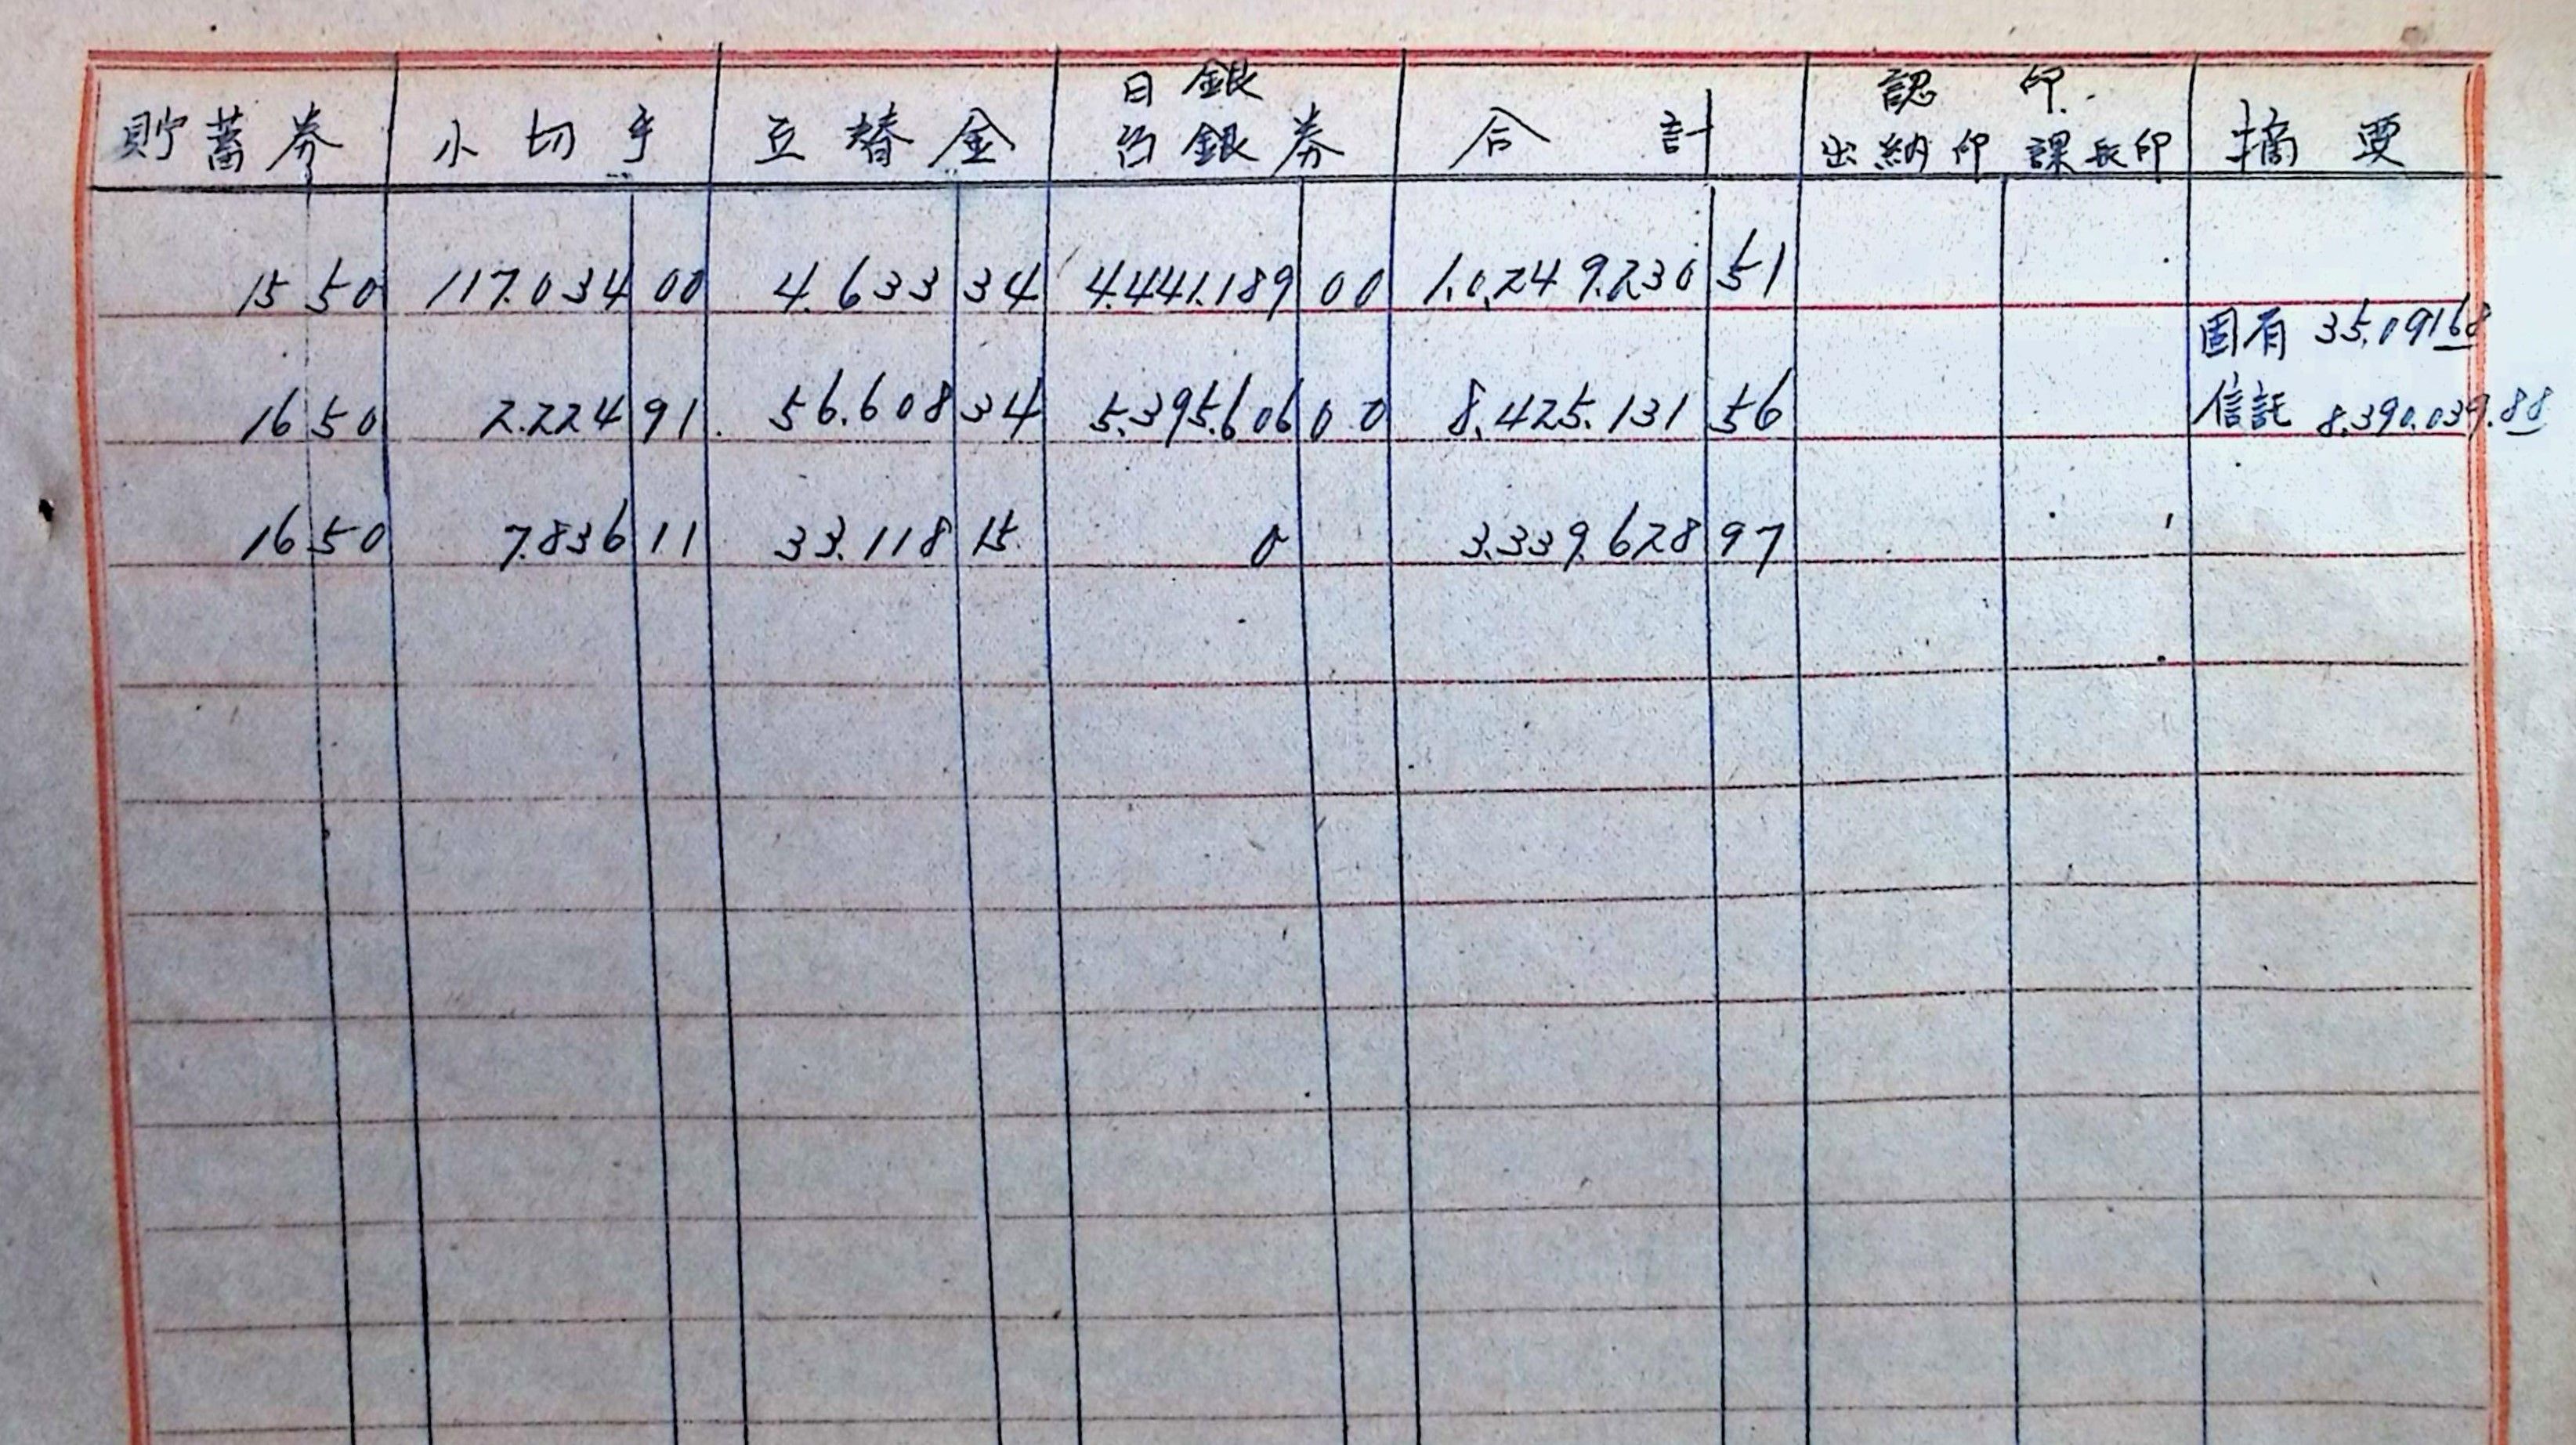 貯蓄券 小切手 立替金 日銀台銀券 合計 認印 出納印 課長印 摘要
15 50 117.034 00 4.633 34 4.441.189 00 1.0.249.230 51
固有 35.091 68
16 50 2.224 91 56.608 34 5.395.606 00 8.425.131 56 信託 8.390.039.88
16 50 7.836 11 33.118 15 0 3.339.628 97